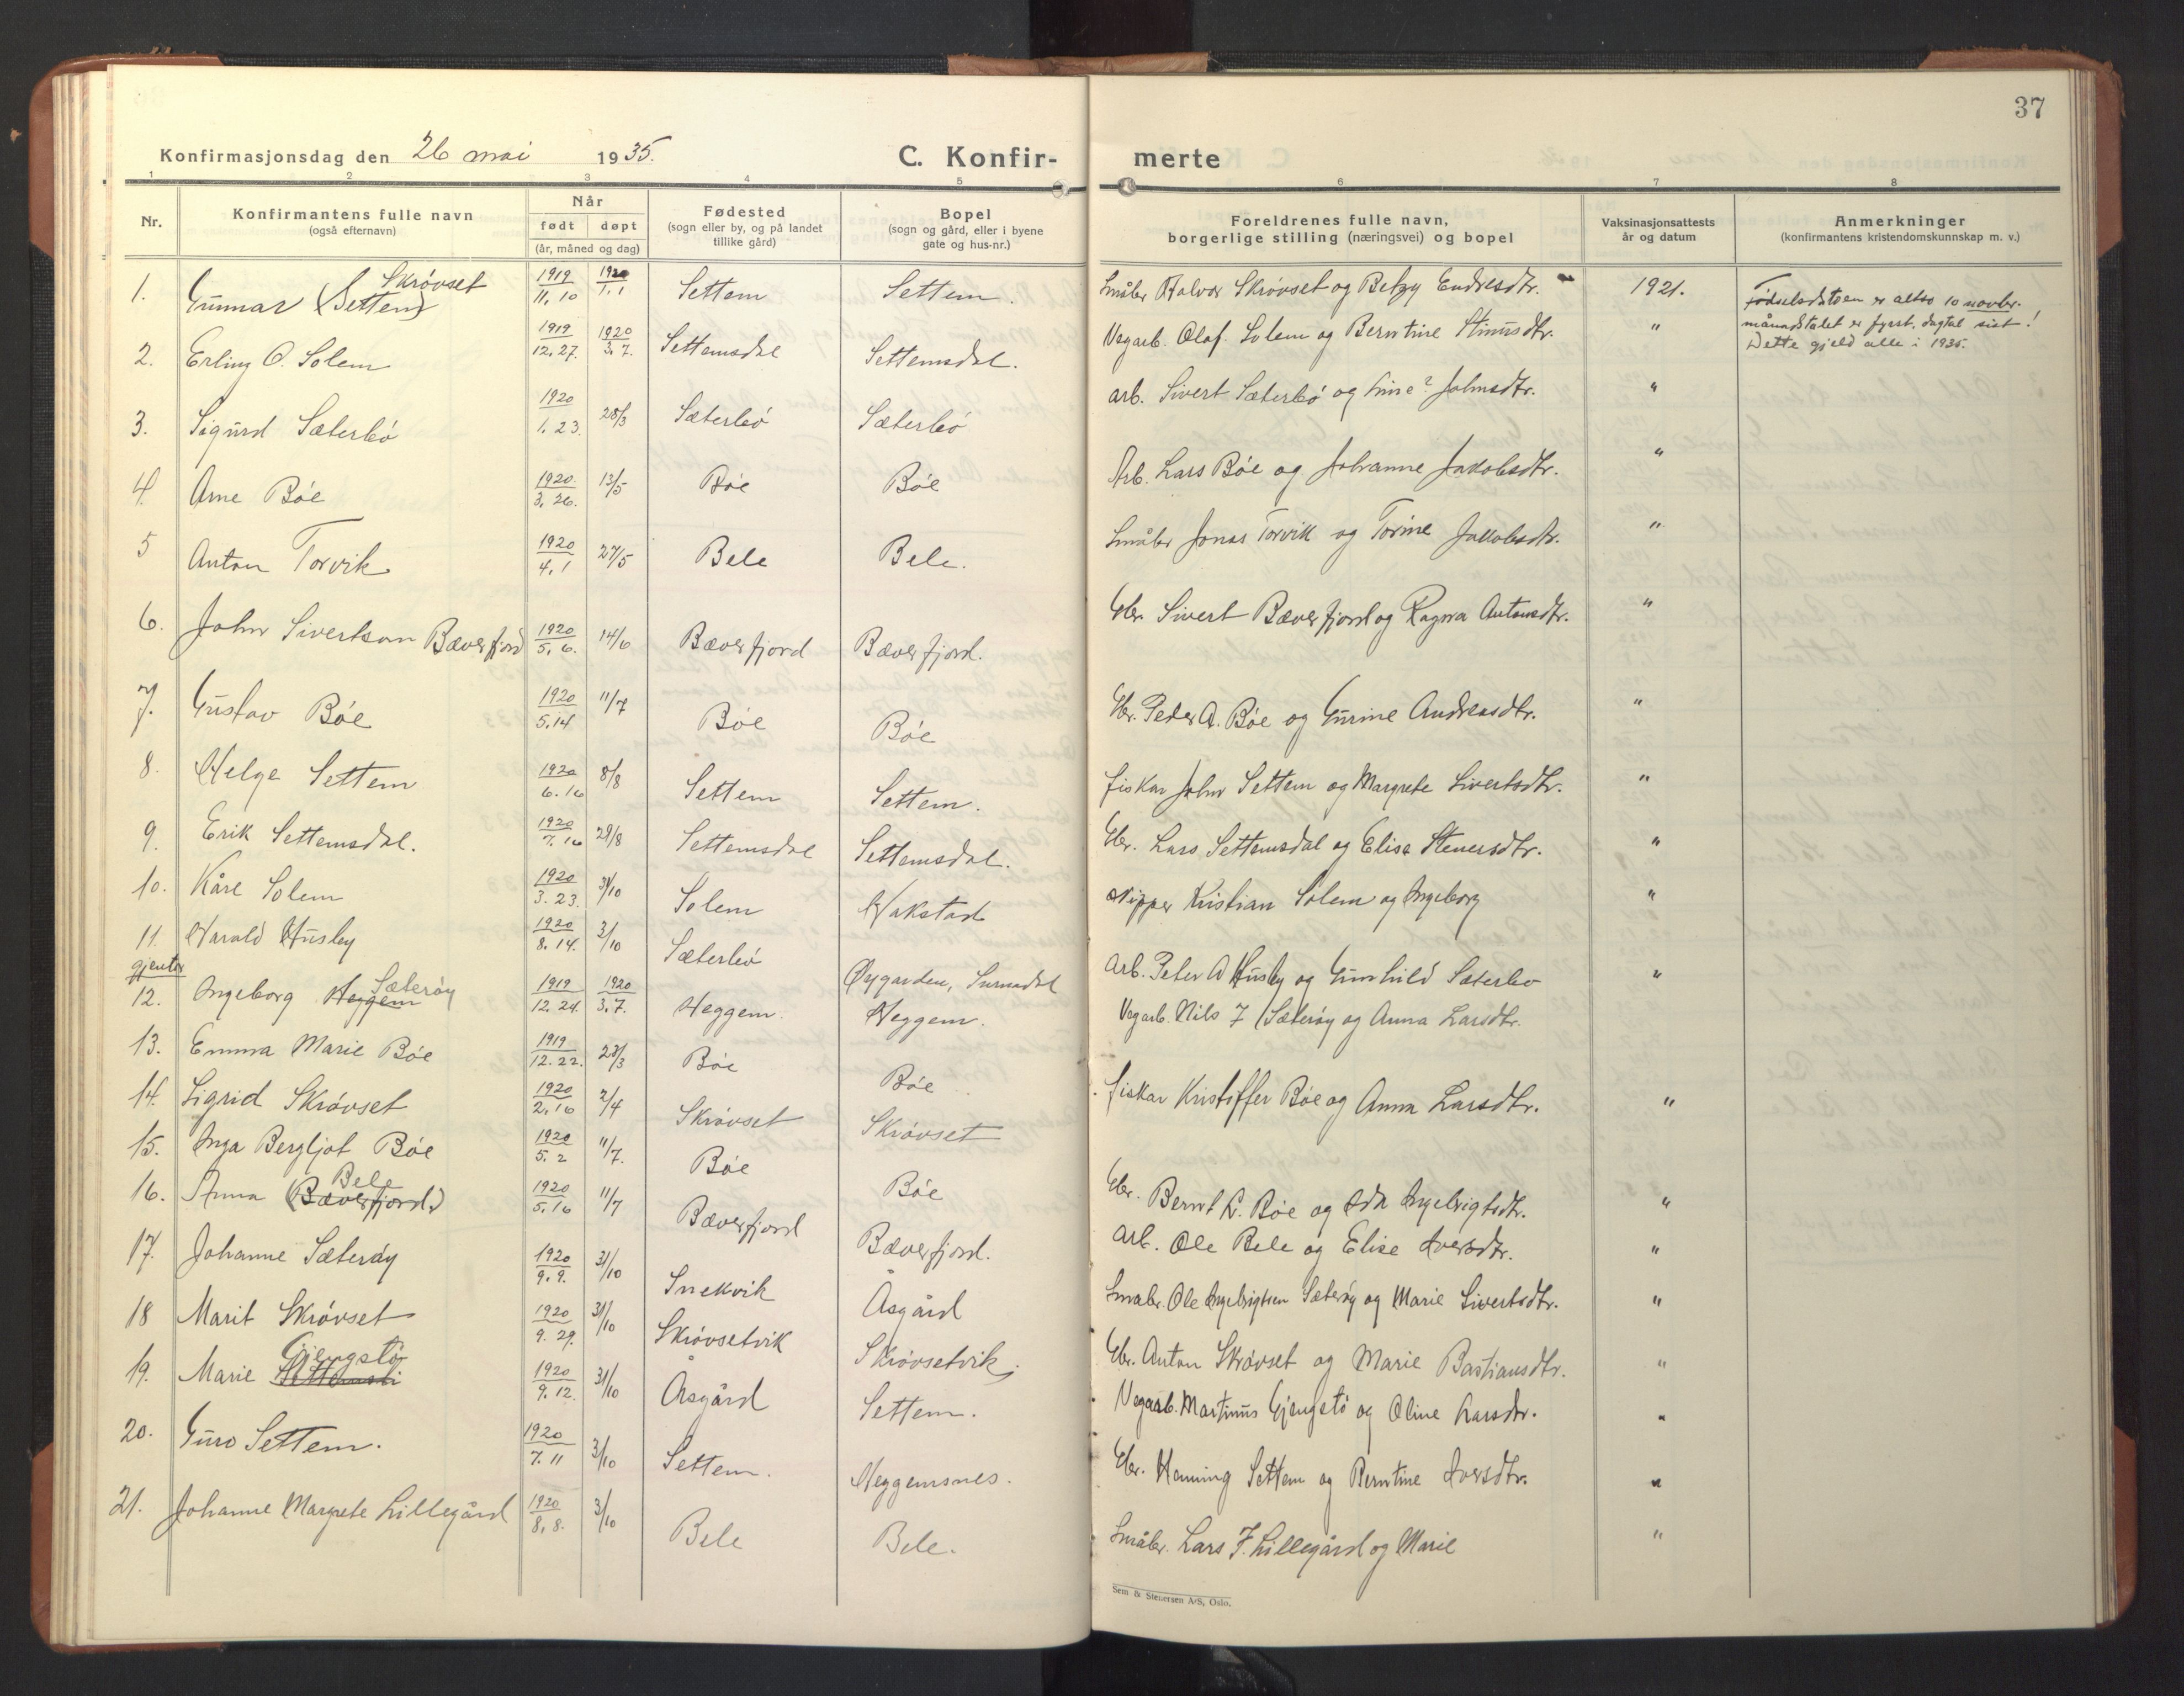 37
Konfirmasjonsdag den 26 mai 1935.
C. Konfir- merte
1 2 3 4 5 6 7 8
Nr.
Konfirmantens fulle navn
(også efternavn)
Når
født døpt
(år, måned og dag)
Fødested
(sogn eller by, og på landet
tillike gård)
Bopel
(sogn og gård, eller i byene
gate og hus-nr.)
Foreldrenes fulle navn,
borgerlige stilling (næringsvei) og bopel
Vaksinasjonsattests
år og datum
Anmerkninger
(konfirmantens kristendomskunnskap m. v.)
1. Gunnar (Settem) Skrøvset 1919 11, 10 1920 1. 1 Settem Settem. Småbr Halvor Skrøvset og Betzy Endresdtr. 1921.
Fødselsdatoen er altso 10 novbr.
månadstalet er fyrst, dagtal sist!
Dette gjeld alle i 1935.
2. Erling O. Solem 1919 12. 27. 1920 3. 7. Settemsdal Settemsdal. Vegarb. Olaf Solem og Berntine Stinusdtr. "
3. Sigurd Sæterbö 1920 1. 23. 28/3 Sæterbö Sæterbö arb. Sivert Sæterbö og Line? Johnsdtr. "
4. Arne Böe 1920. 3. 26. 13/5 Böe Böe Arb. Lars Böe og Johanne Jakobsdtr. "
5 Anton Torvik 1920 4. 1 27/5 Bele Bele. Småbr Jonas Torvik og Torine Jakobsdtr. "
6. John Sivertson Bæverfjord 1920 5. 6. 14/6 Bæverfjord Bæverfjord. Gbr. Sivert Bæverfjord og Ragna Antonsdtr. "
7. Gustav Böe 1920 5.14 11/7 Böe Böe Gbr. Peder A. Böe og Gurine Andreasdtr. "
8. Helge Settem 1920 6. 16 8/8 Settem Settem. fiskar John Settem og Margrete Sivertsdtr. "
9. Erik Settemsdal. 1920 7. 16 29/8 Settemsdal Settemsdal. Gbr. Lars Settemsdal og Elise Stenersdtr. "
10. Kåre Solem 1920 3. 23. 31/10 Solem Hakstad skipper Kristian Solem og Ingeborg "
11. Harald Husby 1920 8. 14. 3/10 Sæterbö Øygarden, Surnadal Arb. Peter A Husby og Gunhild Sæterbo "
gjenter
12. Ingeborg Heggem Sæteröy 1919 12. 24. 1920 3. 7. Heggem. Heggem. Vegarb. Nils J Sæteröy og Anna Larsdtr.
13. Emma Marie Böe 1919 12. 22. 28/3 Böe Böe fiskar Kristoffer Böe og Anna Larsdtr. "
14. Sigrid Skrövset 1920 2. 16 2/4 Skrövset Skrövset
15. Inga Bergljot Böe 1920 5. 2 11/7. Böe Böe Gbr. Bernt L. Böe og Ida Ingebrigtsdtr. "
16. Anna (Bæverfjord.) Bele 1920 5. 16 11/7 Bæverfjord Bæverfjord. Arb. Ole Bele og Elise Iversdtr. "
17. Johanne Sæteröy 1920 9. 9. 31/10 Snekvik Åsgård Småbr. Ole Ingebrigtsen Sæteröy og Marie Sivertsdtr. "
18 Marit Skrövset 1920 9. 29. 31/10 Skrövsetvik Skrövsetvik. Gbr. Anton Skrövset og Marie Bastiansdtr. "
19. Marie Gjengstö 1920 9. 12. 31/10 Åsgård Settem. Vegarb. Martinus Gjengstö og Oline Larsdtr. "
20. Guro Settem. 1920 7. 11 3/10 Settem. Heggemsnes. Gbr. Henning Settem og Berntine Iversdtr. "
21. Johanne Margrete Lillegård 1920 8. 8. 3/10 Bele Bele. Småbr. Lars J. Lillegård og Marie "
Sem & Stenersen A/S, Oslo.